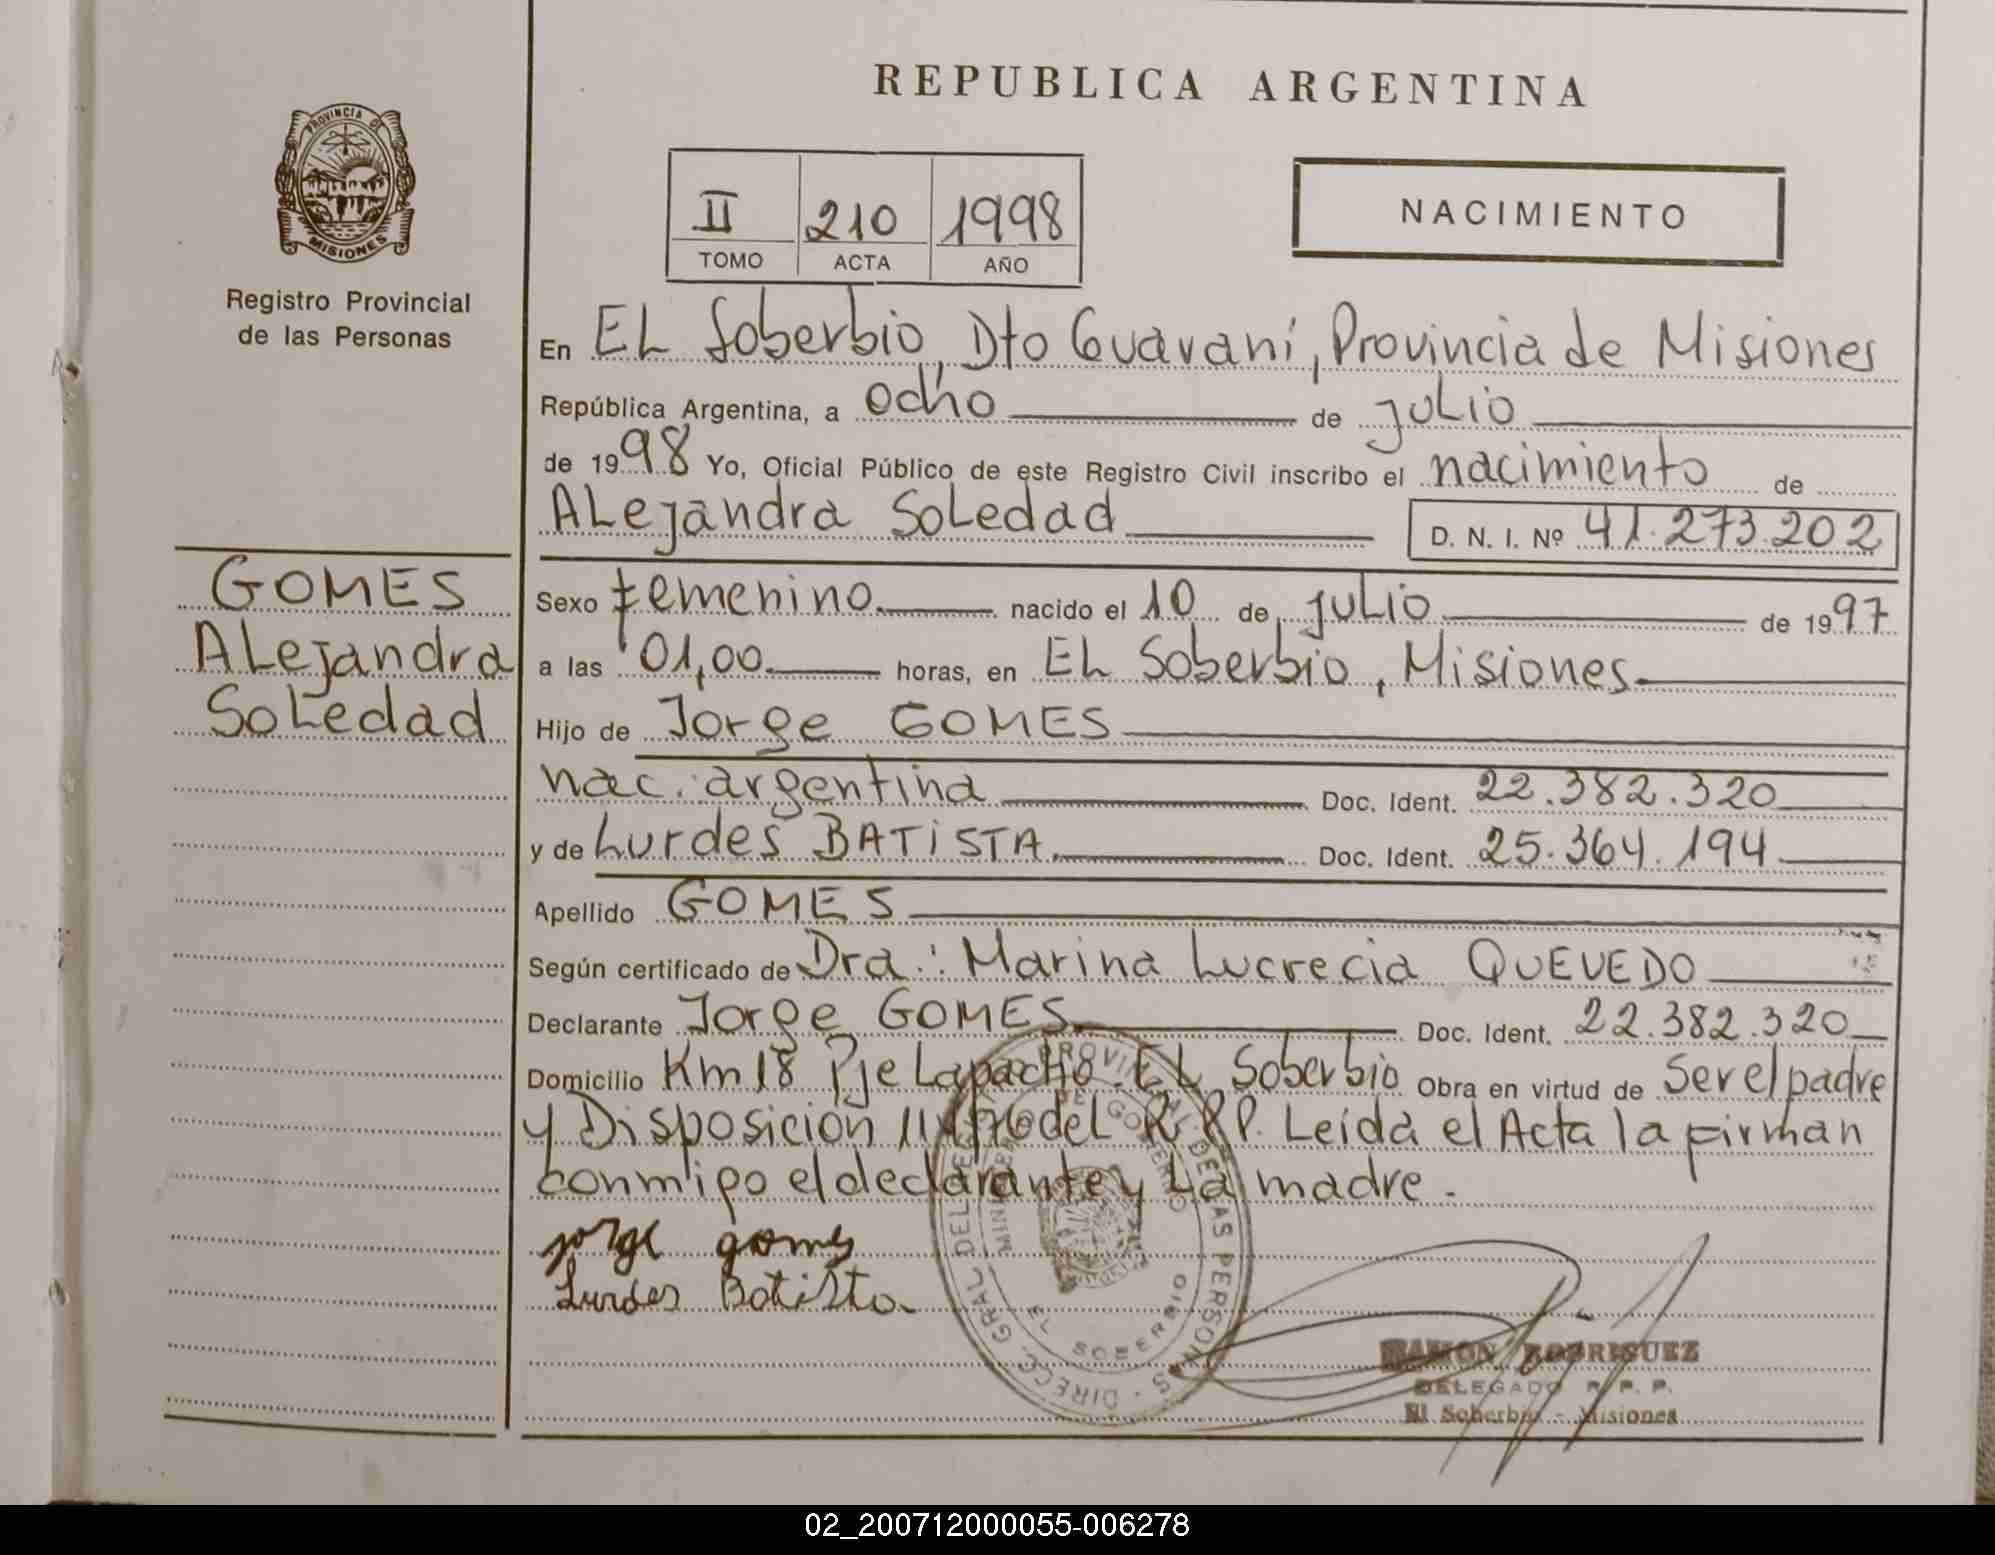 REPUBLICA ARGENTINA
PROVINCIA DE
MISIONES
Registro Provincial
de las Personas
II 210 1998
TOMO ACTA AÑO
NACIMIENTO
En EL Soberbio, Dto Guaraní, Provincia de Misiones
República Argentina, a ocho de julio
de 1998 Yo, Oficial Público de este Registro Civil inscribo el nacimiento de
ALejandra SoLedad D. N. I. Nº 41.273.202
GOMES
ALejandra
SoLedad
Sexo femenino nacido el 10 de juLio de 1997
a las 01,00 horas, en EL Soberbio, Misiones
Hijo de Jorge GOMES
nac. argentina Doc. Ident. 22.382.320
y de Lurdes BATiSTA Doc. Ident. 25.364.194
Apellido GOMES
Según certificado de Dra.: Marina Lucrecia QUEVEDO
Declarante Jorge GOMES Doc. Ident. 22.382.320
Domicilio Km 18 Pje Lapacho. EL Soberbio Obra en virtud de Ser el padre
y Disposición 11/76 del R.P.P. Leída el Acta la firman
conmigo el declarante y La madre.
jorge gomes
Lurdes Batista
DIRECC. GRAL. DEL REG. PROVINCIAL DE LAS PERSONAS
MINISTERIO DE GOBIERNO
EL SOBERBIO
RAMON RODRIGUEZ
DELEGADO R. P. P.
El Soberbio - Misiones
02_200712000055-006278